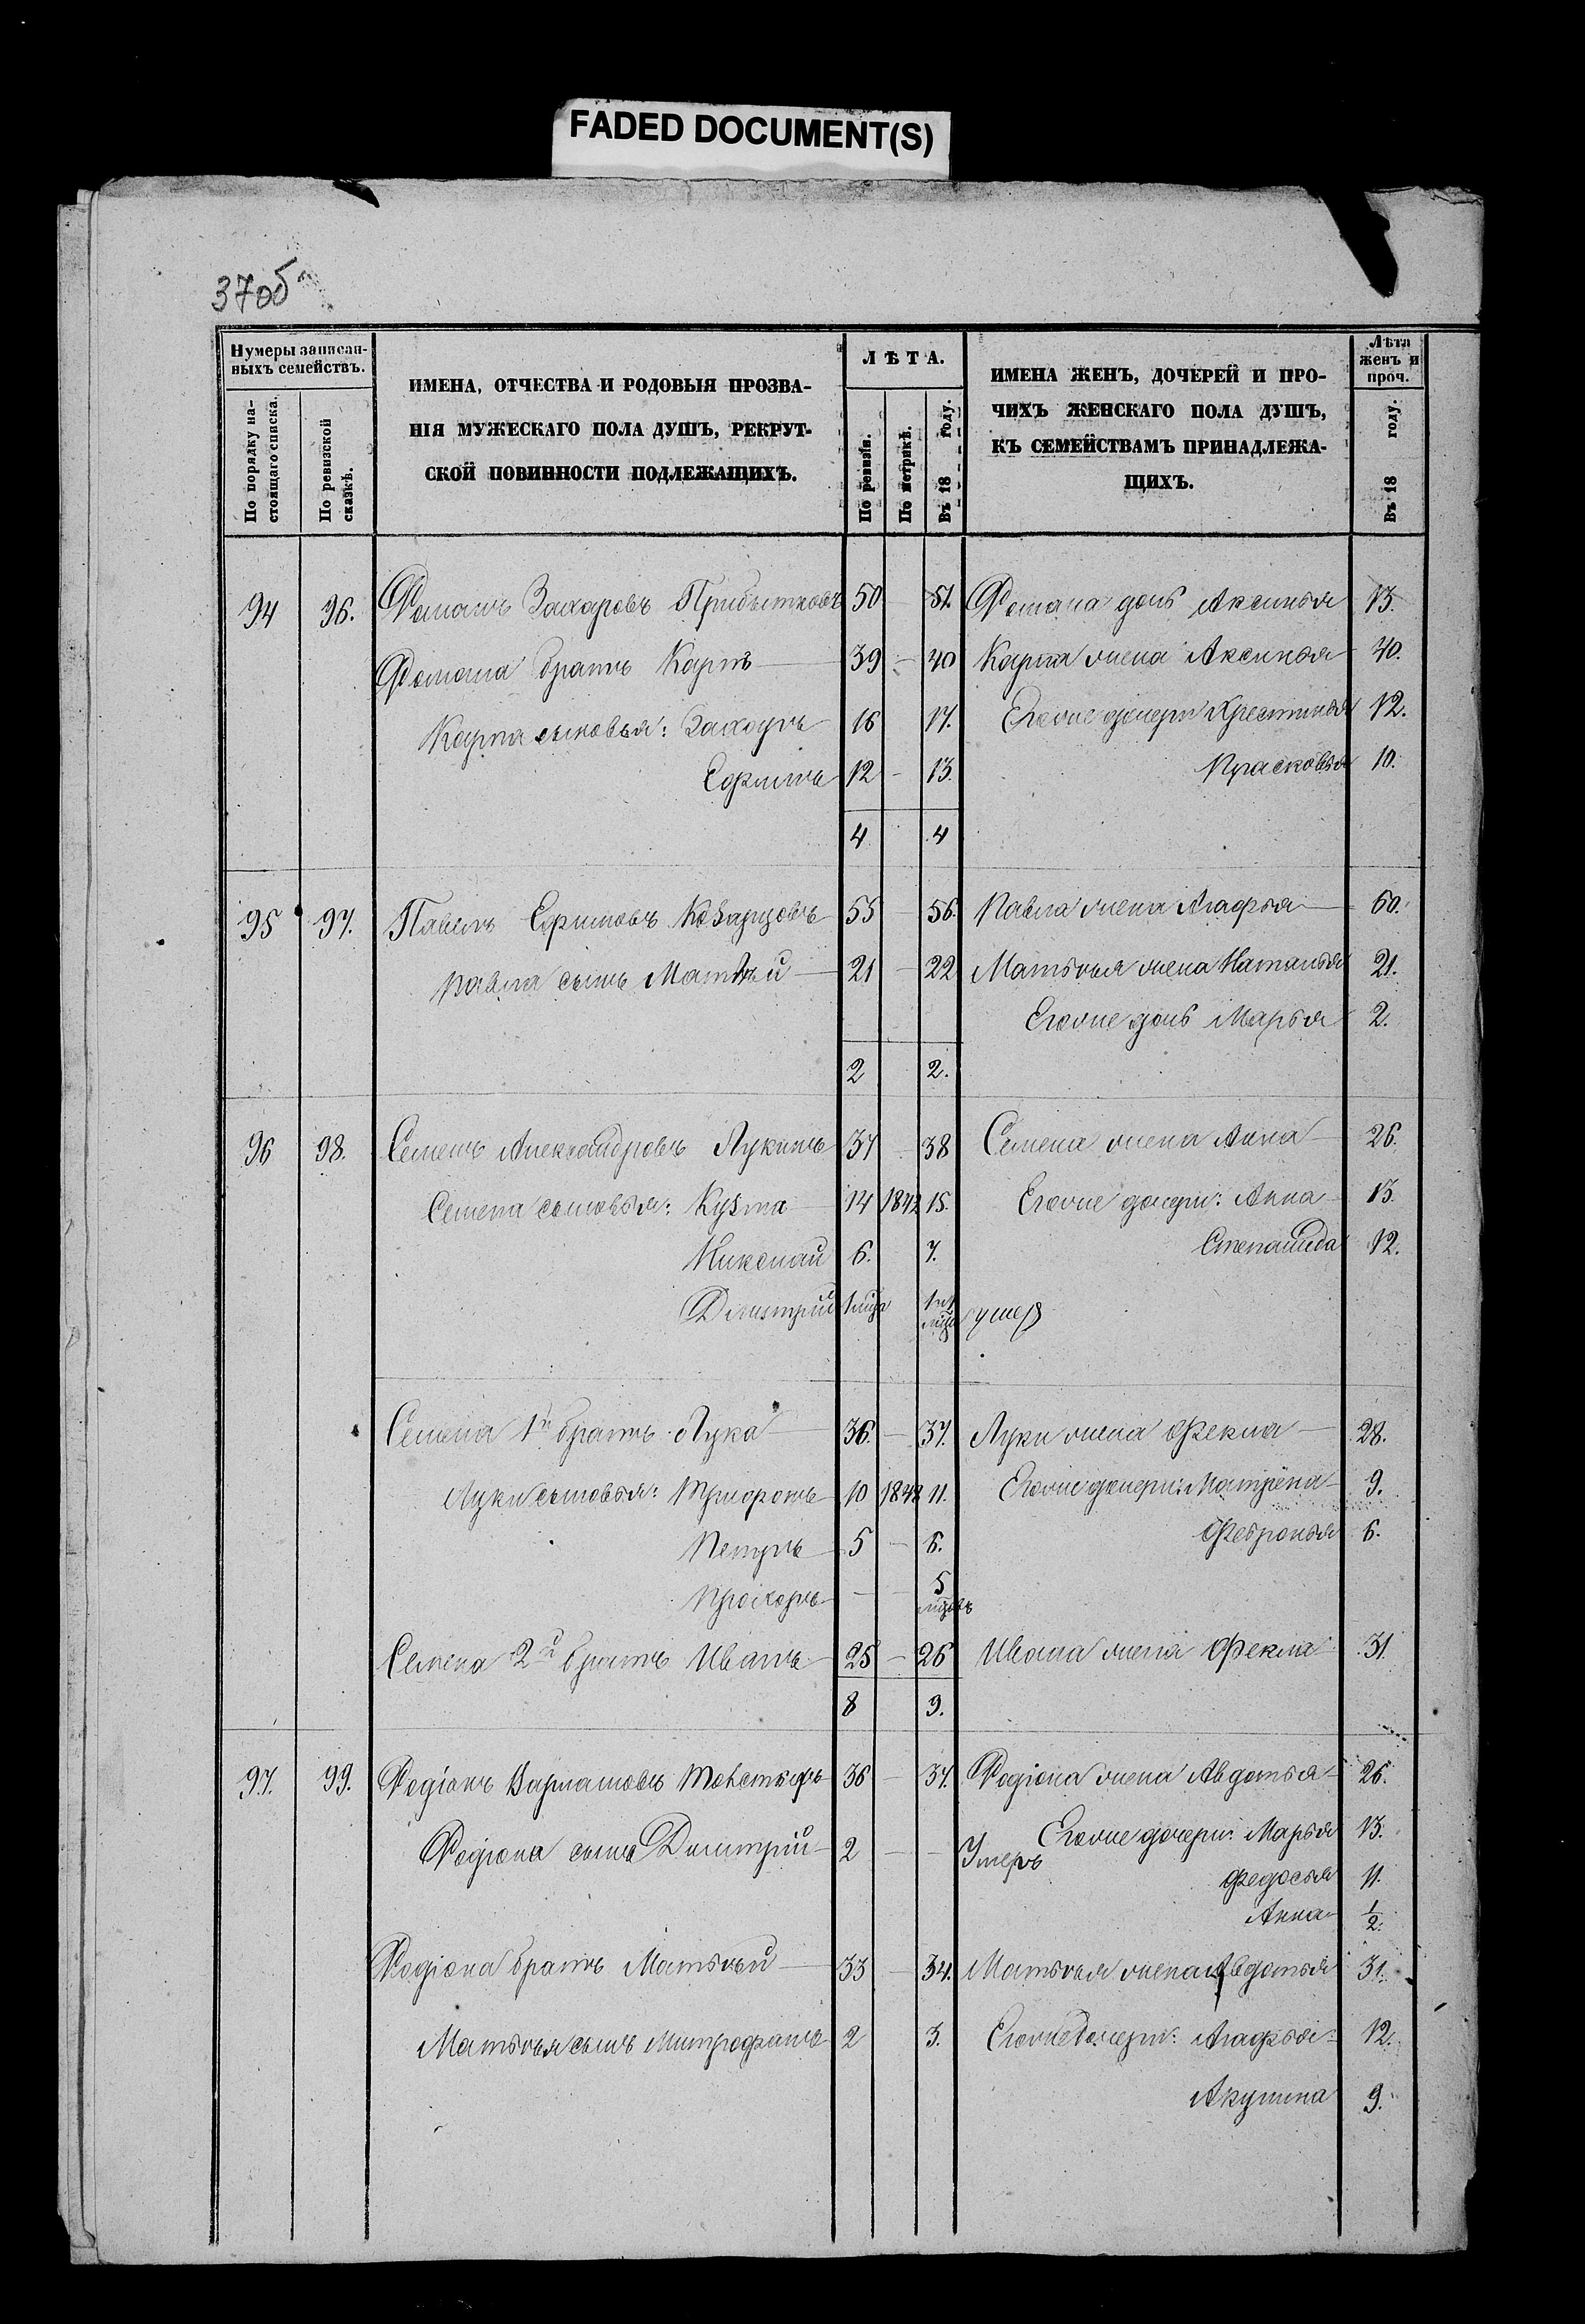 FADED DOCUMENT(S)
37об
Нумеры записан-
ныхъ семействъ.
По порядку на-
стоящаго списка.
По ревизской
сказкѣ.
ИМЕНА, ОТЧЕСТВА И РОДОВЫЯ ПРОЗВА-
НІЯ МУЖЕСКАГО ПОЛА ДУШЪ, РЕКРУТ-
СКОЙ ПОВИННОСТИ ПОДЛЕЖАЩИХЪ.
ЛѢТА.
По ревизіи.
По метрикѣ.
Въ 18 году.
ИМЕНА ЖЕНЪ, ДОЧЕРЕЙ И ПРО-
ЧИХЪ ЖЕНСКАГО ПОЛА ДУШЪ,
КЪ СЕМЕЙСТВАМЪ ПРИНАДЛЕЖА-
ЩИХЪ.
Лѣта
женъ и
проч.
Въ 18 году.
94 96. Захаровъ Прибытковъ 50 51. дочь Аксинья 13.
братъ Карпъ 39 - 40 Карпа жена Аксинья 40.
Карпа сыновья: Захаръ 16 17. Егоже дочери Крестинья 12.
Ефимъ 12 - 13. Прасковья 10.
4 4
95 97. Павелъ Ефимовъ 55 - 56. Павла жена Агафья 60.
Павла сынъ Матвѣй 21 - 22 Матвѣя жена Наталья 21.
Егоже дочь Марья 2.
2 2.
96 98. Семенъ Александровъ Лукинъ 37 38 Семена жена Анна 26.
Семена сыновья: Кузма 14 1842 15. Егоже дочери: Анна 13.
Николай 6. 7. Степанида 12.
Дмитрій умер
Семена 1й братъ Лука 36. - 37. Луки жена Фекла 28.
Луки сыновья: Трифонъ 10 1848 11. Егоже дочери: Матрена 9.
Петръ 5 - 6. Февронья 6.
Прохоръ - - 5
Семена 2й братъ Иванъ 25 - 26 Ивана жена Фекла 31.
8 9.
97. 99. Родіонъ 36 - 37. Родіона жена Авдотья 26.
Егоже дочери: Марья 13.
Родіона сынъ Дмитрій 2 - - Умеръ
Федосья 11.
Анна 1/2.
Родіона братъ Матвѣй 33 - 34. Матвѣя жена Авдотья 31.
Матвѣя сынъ Митрофанъ 2 3. Егоже дочери: Агафья 12.
Акулина 9.